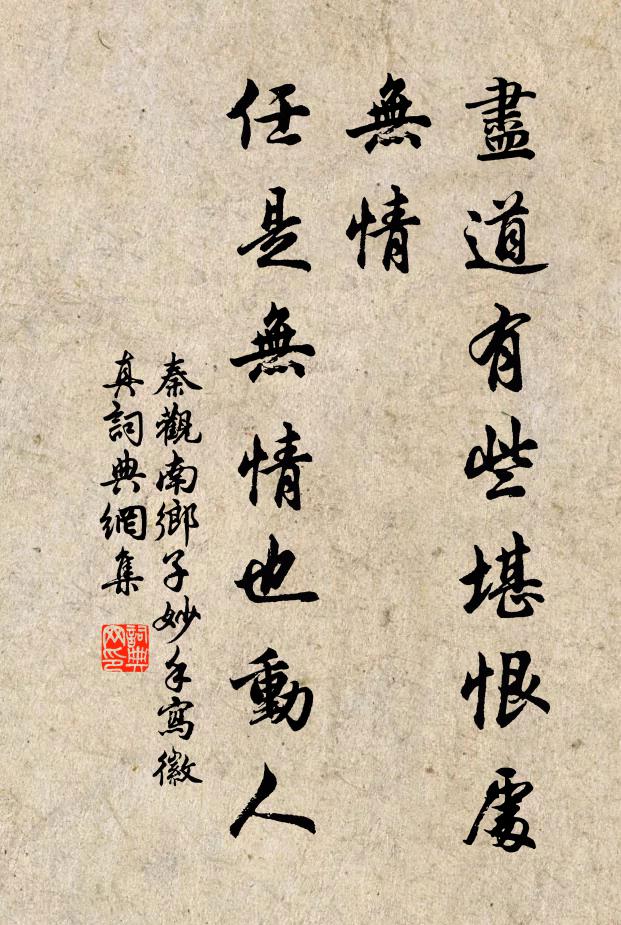 盡道有些堪恨處
無情
任是無情也動人
秦觀南鄉子妙手寫徽
真詞典網集
詞典
网印